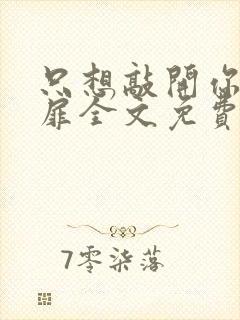 只想敲開你
扉全文免費
7零柒落